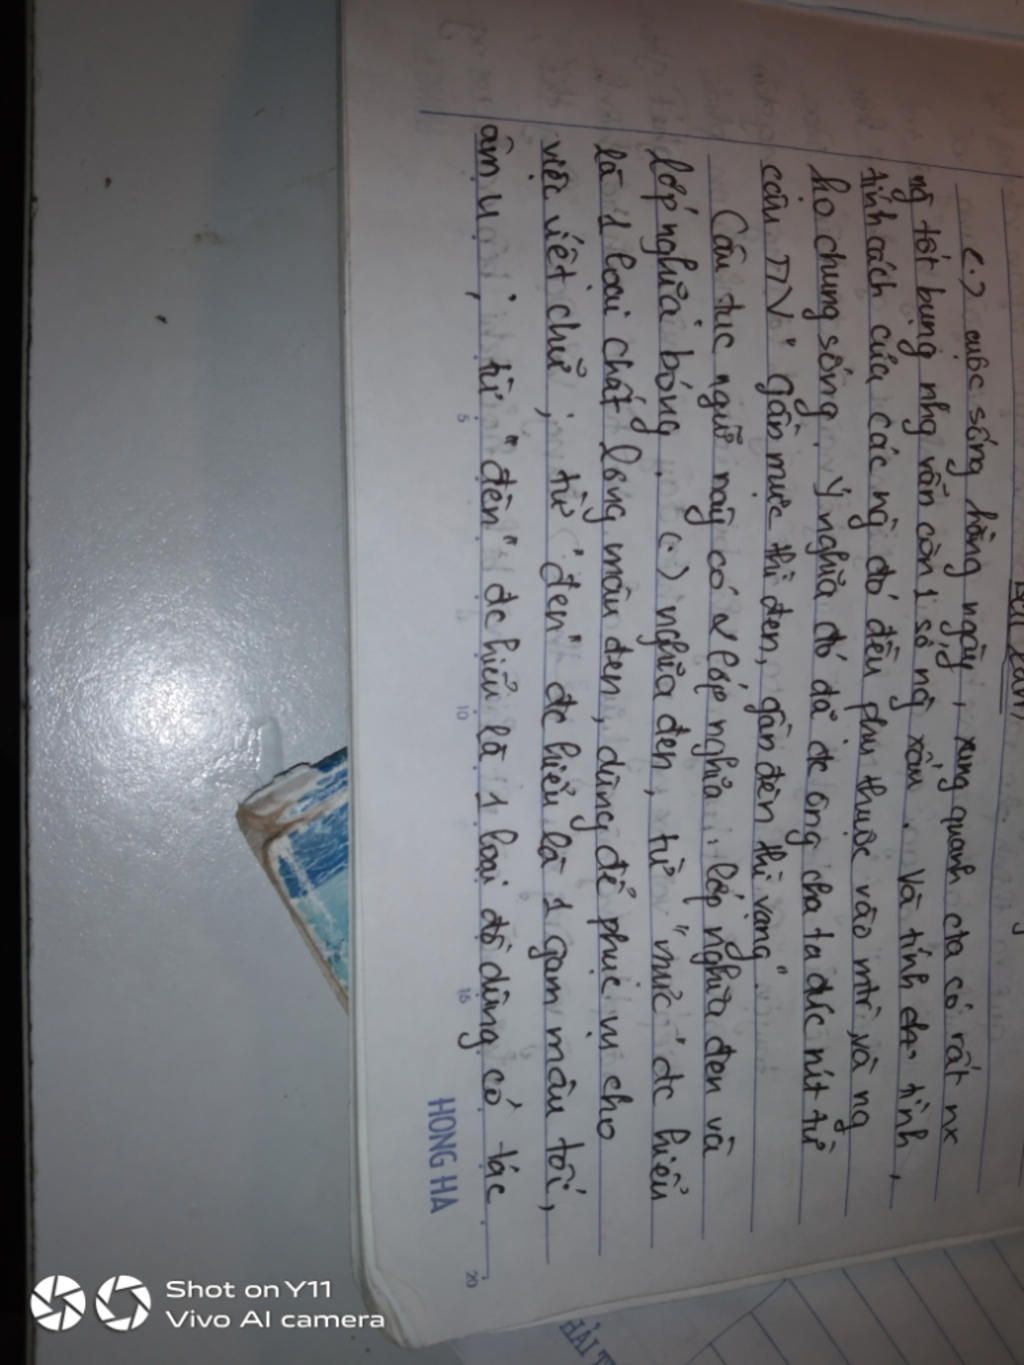 Bài làm
(.) cuộc sống hằng ngày, xung quanh cta có rất nx
ng tốt bụng nhg vẫn còn 1 số ng xấu. Và tính tình,
tính cách của các ng đó đều phụ thuộc vào mtr và ng
họ chung sống. Ý nghĩa đó đã đc ông cha ta đúc nit từ
câu TN "gần mực thì đen, gần đèn thì rạng".
Câu tục ngữ này có 2 lớp nghĩa: lớp nghĩa đen và
lớp nghĩa bóng. (.) nghĩa đen, từ "mực" đc hiểu
là 1 loại chất lỏng màu đen, dùng để phục vụ cho
việc viết chữ; từ "đen" đc hiểu là 1 gam màu tối,
âm u; từ "đèn" đc hiểu là 1 loại đồ dùng có tác
5
10
15
20
HONG HA
HẢI T
Shot on Y11
Vivo AI camera